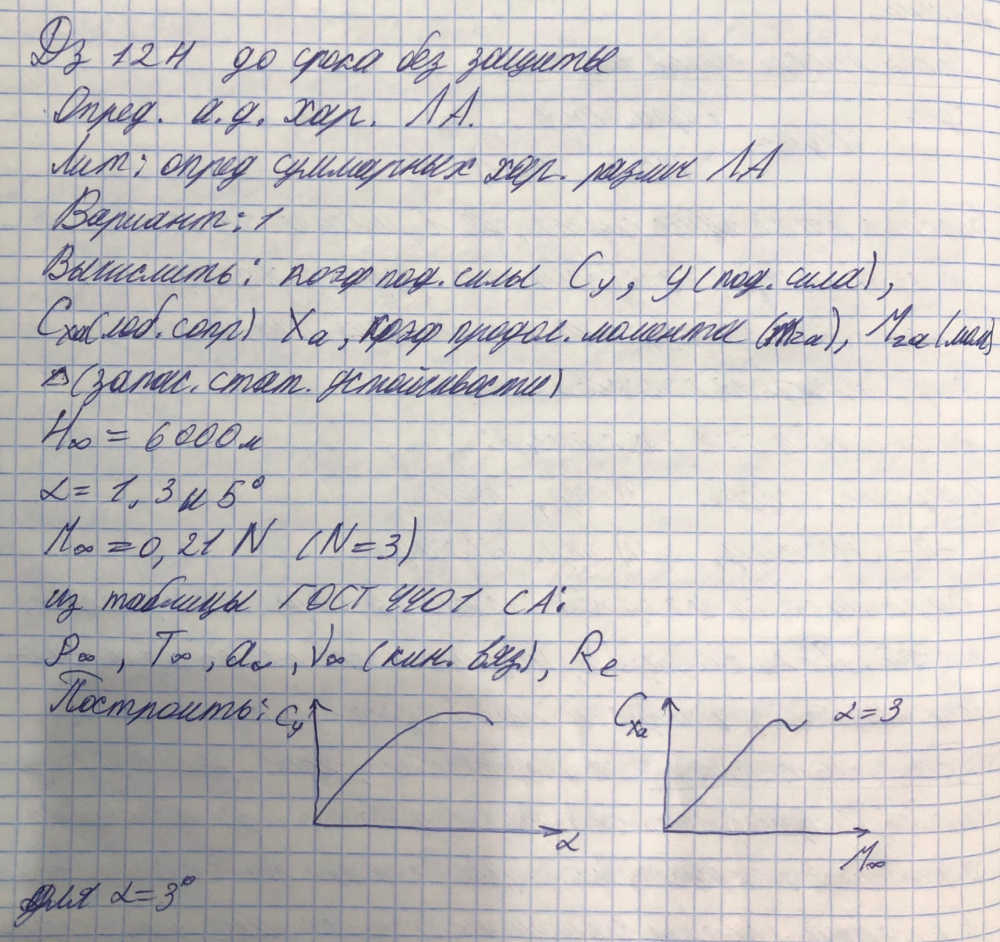 Дз 12Н до срока без защиты
Опред. а.д. хар. ЛА.
Лит: опред суммарных хар. разми ЛА
Вариант: 1
Вычислить: коэф под. силы Cy, y (под. сила),
Cxa (лоб. сопр) Xa, коэф продол. момента (mza), Mza (мом)
(запас. стат. устойчивости)
H∞ = 6000м
α = 1, 3 и 5°
M∞ = 0,21 N (N=3)
из таблицы ГОСТ 4401 СА:
P∞, T∞, a∞, ν∞ (кин. вяз), Re
Построить: Cy α
Cxa α=3 M∞
для α=3°